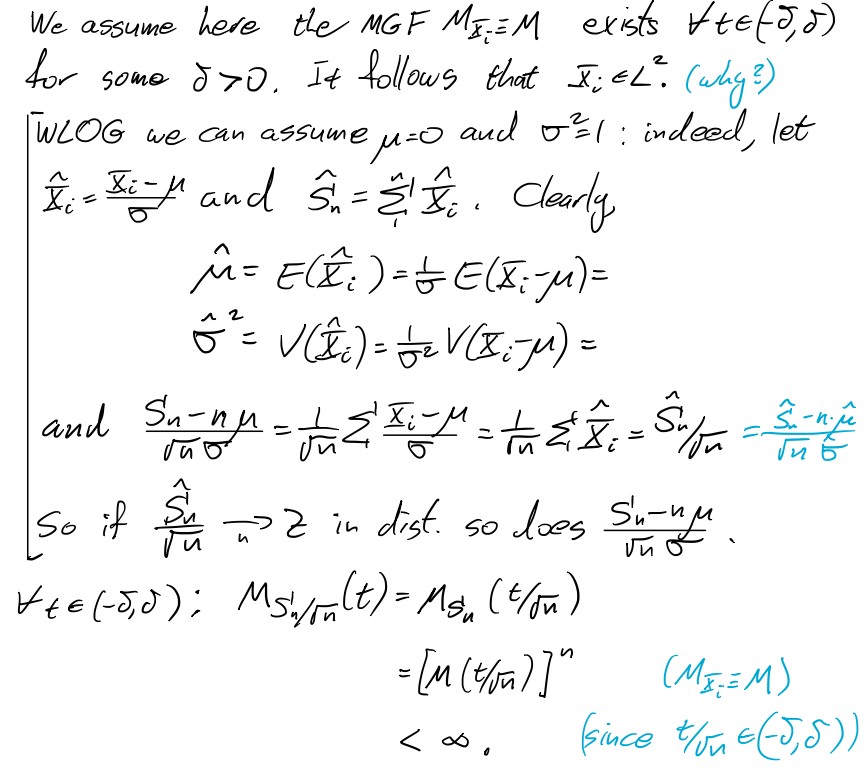 We assume here the MGF M_{X_i} ≡ M exists ∀ t ∈ (-δ, δ)
for some δ > 0. It follows that X_i ∈ L². (why?)
WLOG we can assume μ=0 and σ²=1 : indeed, let
X̂_i = (X_i - μ)/σ and Ŝ_n = Σ_1^n X̂_i . Clearly,
μ̂ = E(X̂_i) = 1/σ E(X_i - μ) =
σ̂² = V(X̂_i) = 1/σ² V(X_i - μ) =
and (S_n - nμ)/(√n σ) = 1/√n Σ_1 (X_i - μ)/σ = 1/√n Σ_1 X̂_i = Ŝ_n/√n = (Ŝ_n - n·μ̂)/(√n σ̂)
So if Ŝ_n/√n →_n Z in dist. so does (S_n - nμ)/(√n σ) .
∀ t ∈ (-δ, δ) ; M_{S_n/√n}(t) = M_{S_n}(t/√n)
= [M(t/√n)]^n (M_{X_i} ≡ M)
< ∞ . (since t/√n ∈ (-δ, δ))